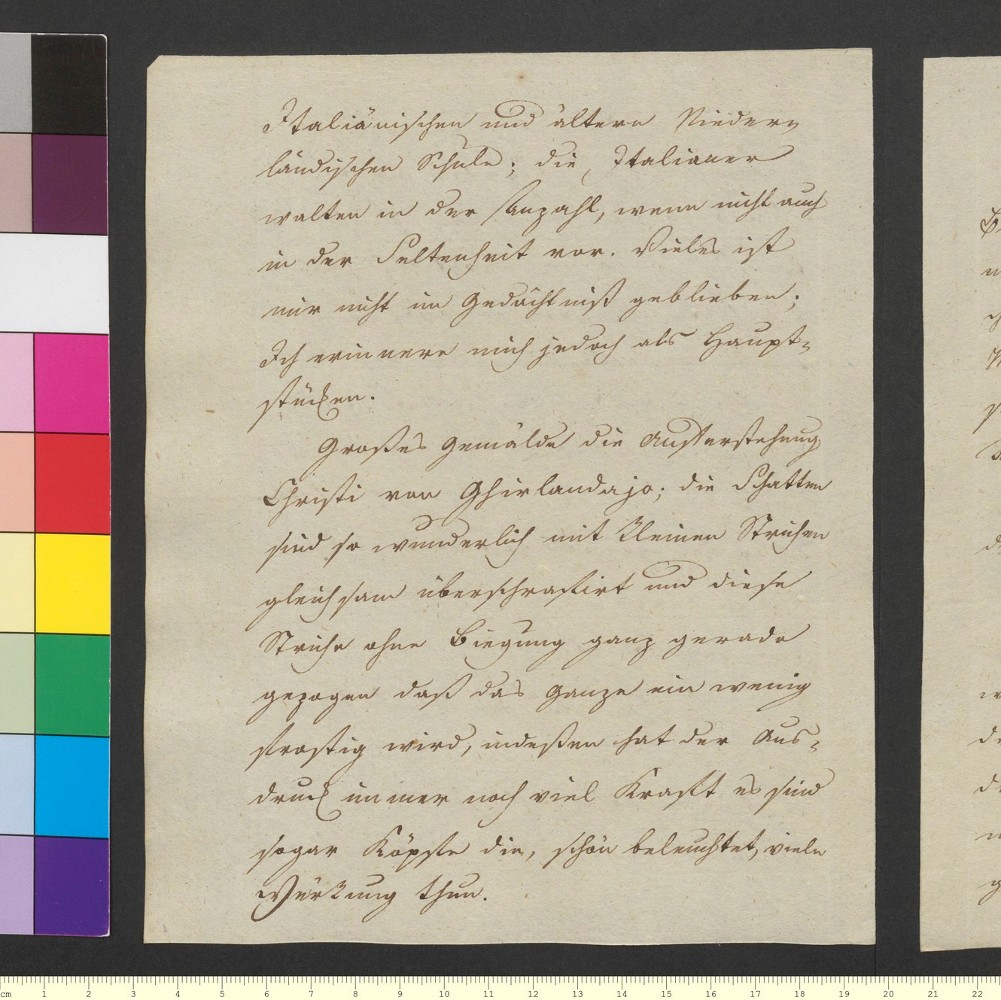 Italiänischen und ältern Nieder=
ländischen Schule; die Italiäner
walten in der Anzahl, wenn nicht auch
in der Seltenheit vor. Vieles ist
mir nicht im Gedächtniß geblieben;
Ich erinnere mich jedoch als Haupt=
stücken.
Großes Gemälde die Auferstehung
Christi von Ghirlandajo; die Schatten
sind so wunderlich mit kleinen Strichen
gleichsam überschrafirt und diese
Striche ohne Biegung ganz gerade
gezogen daß das Ganze ein wenig
frostig wird, indeßen hat der Aus=
druck immer noch viel Kraft es sind
sogar Köpfe die, schön beleuchtet, viele
Würkung thun.